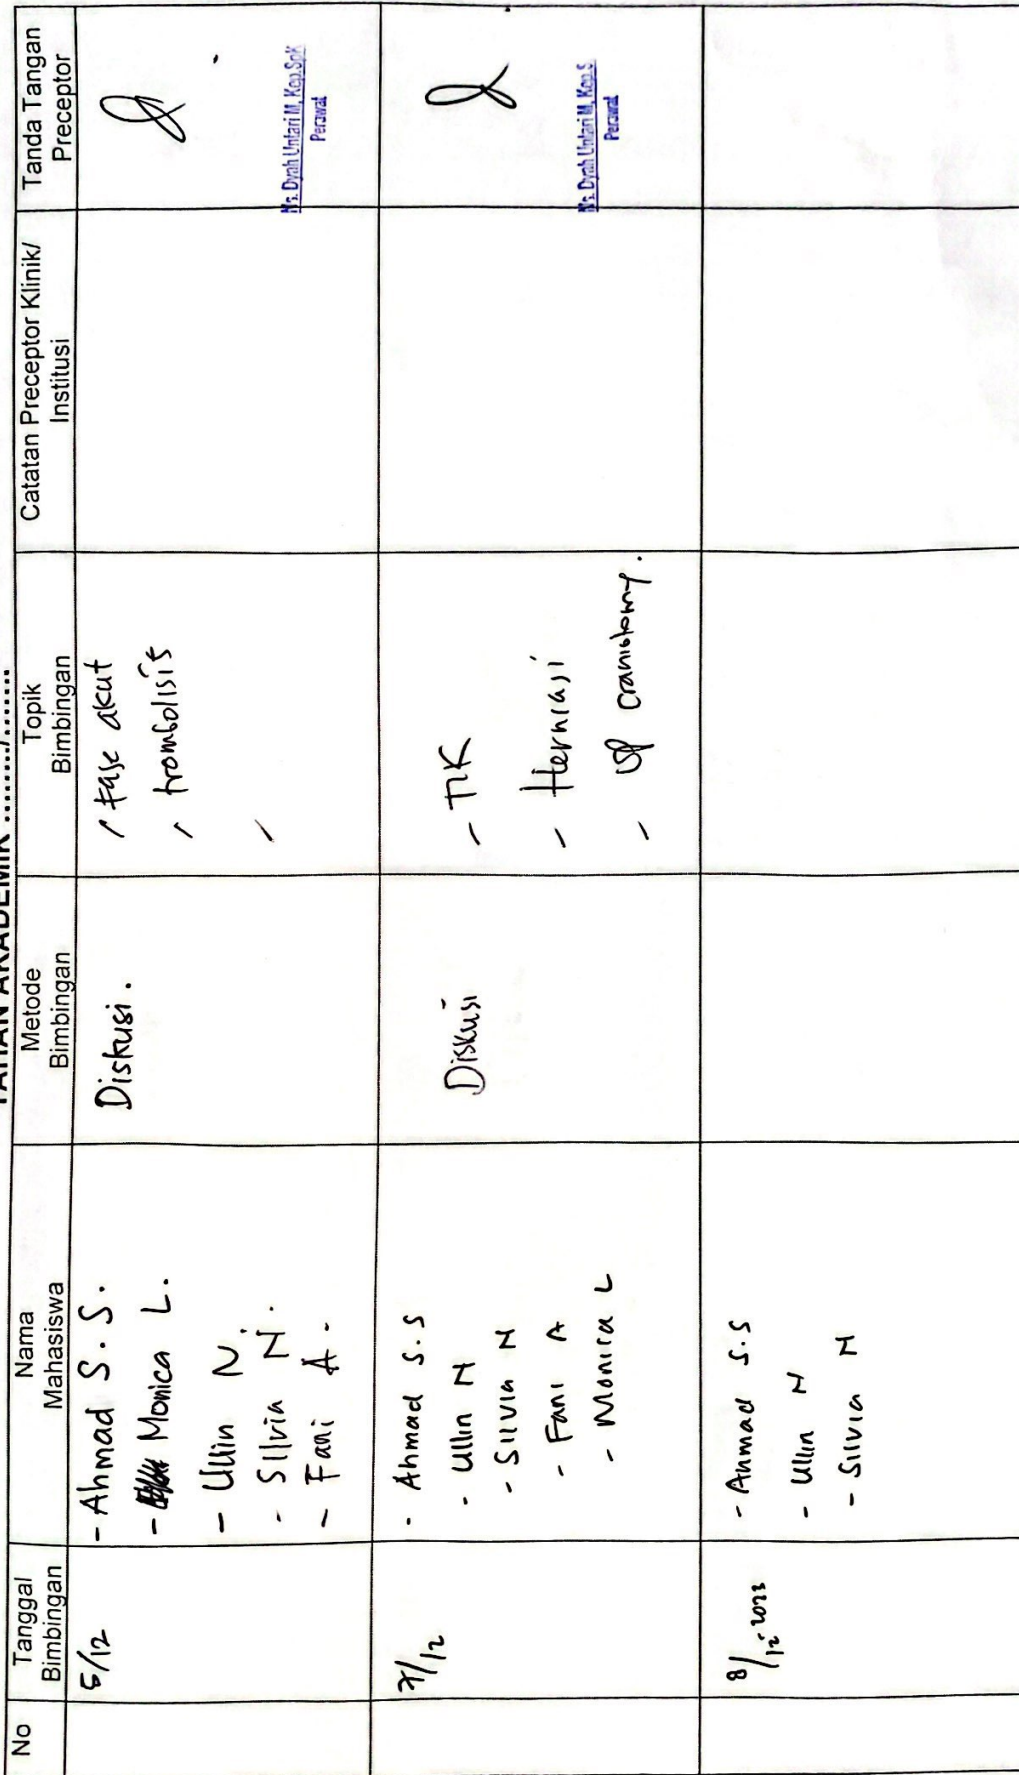 TAHAN AKADEMIK ......../........
No
Tanggal
Bimbingan
Nama
Mahasiswa
Metode
Bimbingan
Topik
Bimbingan
Catatan Preceptor Klinik/
Institusi
Tanda Tangan
Preceptor
5/12
- Ahmad S.S.
- Monica L.
- Ullin N.
- Silvia N.
- Fani A.
Diskusi.
- fase akut
- trombolisis
-
Ns. Dyah Untari M, Kep.SpK
Perawat
7/12
- Ahmad S.S
- Ullin N
- Silvia N
- Fani A
- Monica L
Diskusi
- TIK
- Herniasi
- craniotomy.
Ns. Dyah Untari M, Kep.S
Perawat
8/12-2023
- Ahmad S.S
- Ullin N
- Silvia N